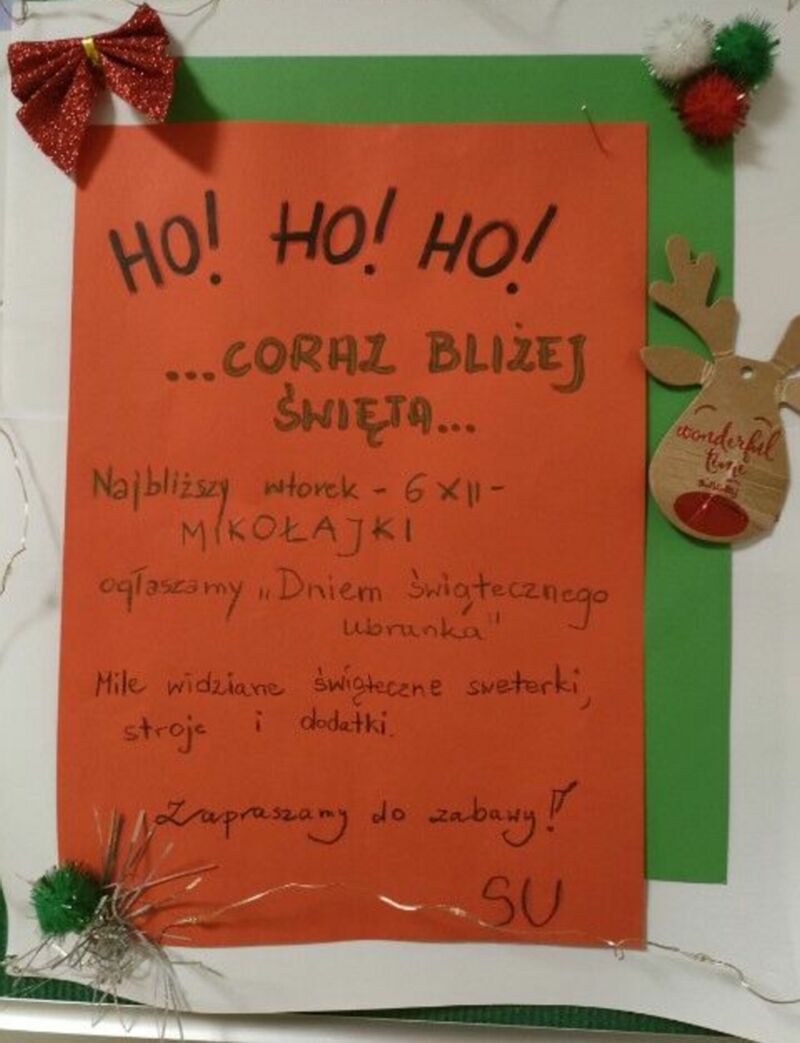 HO! HO! HO!
...CORAZ BLIŻEJ
ŚWIĘTA...
Najbliższy wtorek - 6 XII -
MIKOŁAJKI
ogłaszamy „Dniem świątecznego
ubranka"
Mile widziane świąteczne sweterki,
stroje i dodatki.
Zapraszamy do zabawy!
SU
wonderful
time